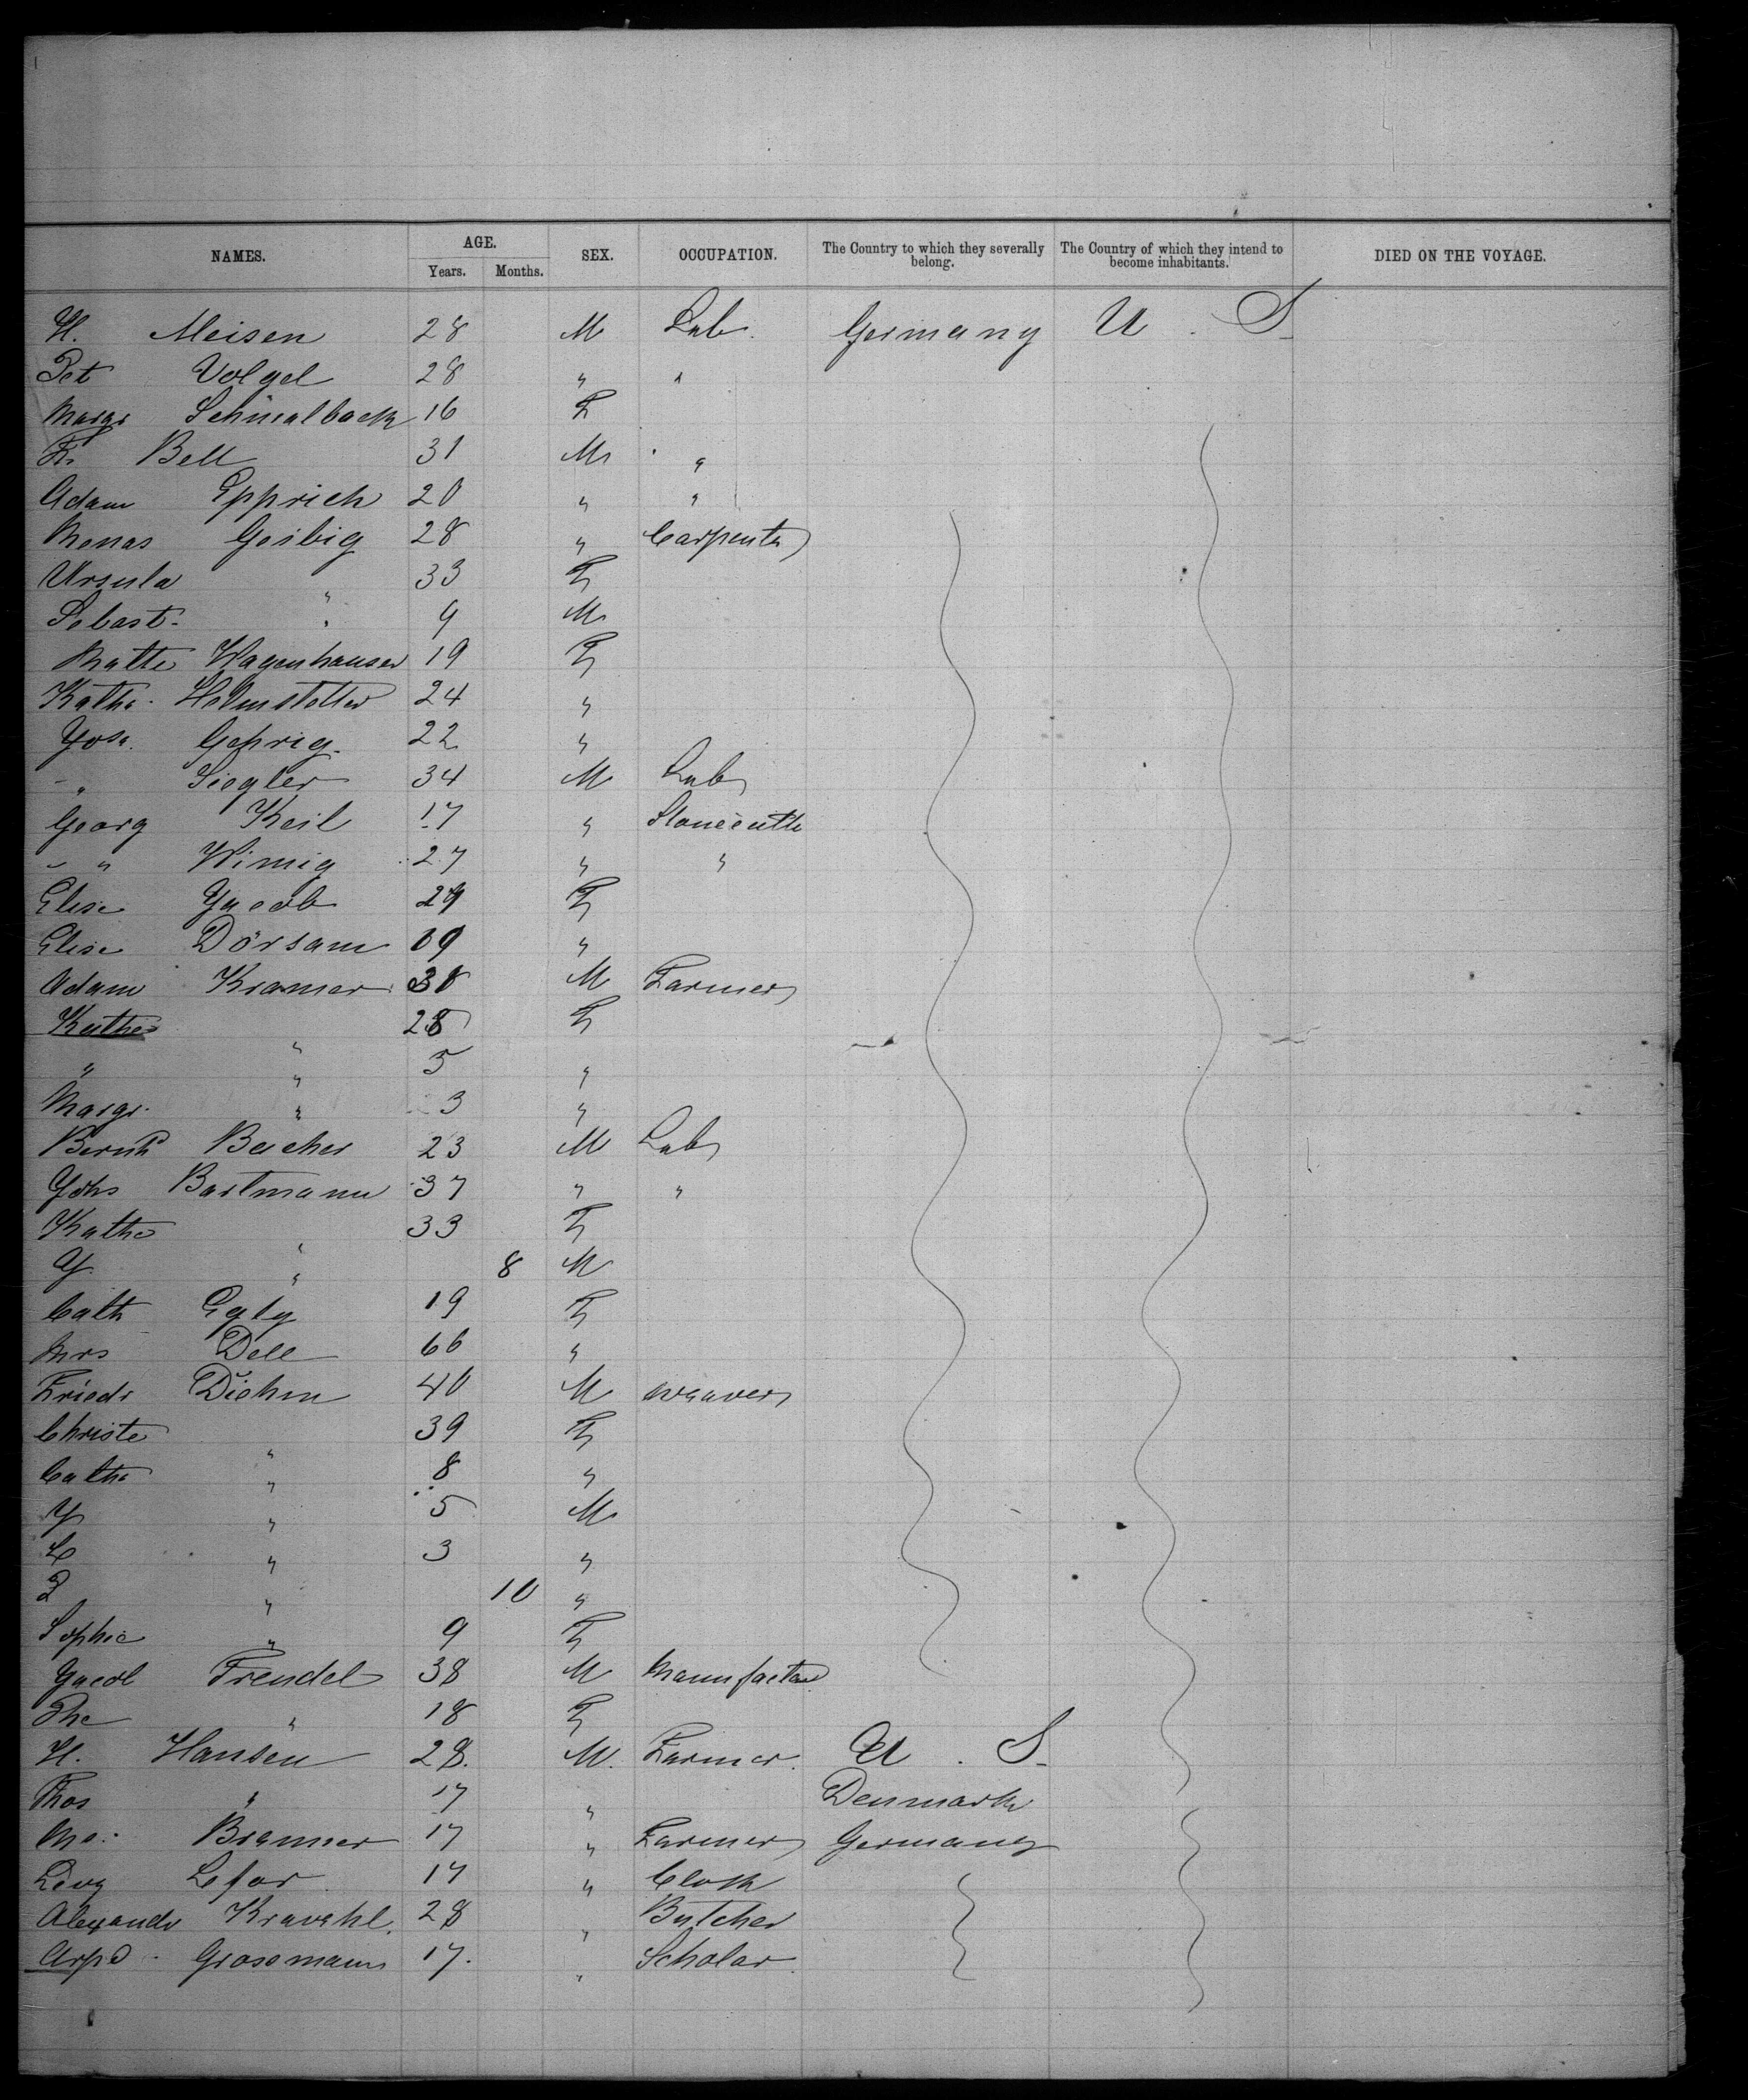 NAMES. AGE. SEX. OCCUPATION. The Country to which they severally belong. The Country of which they intend to become inhabitants. DIED ON THE VOYAGE.
Years. Months.
H. Meisen 28 M Lab. Germany U. S.
Pet Volgel 28 " "
Margr Schmalback 16 F
Fr. Bell 31 M "
Adam Epprich 20 " "
Geibig 28 " Carpenter
Ursula " 33 F
Sebast. " 9 M
Wagenhauser 19 F
Kathr. Helmstetter 24 "
Jos. Gehrig. 22 "
" Siegler 34 M Lab
Georg Keil 17 " Stonecutter
" Wimig 27 " "
Elise Jacob 29 F
Elise Dörsam 19 "
Adam Kramer 38 M Farmer
Kathe " 28 F
" " 5 "
Margr. " 3 "
Bernh Becher 23 M Lab
Johs Bartmann 37 " "
Kathe " 33 F
J. " 8 M
Cath Egly 19 F
Mrs Dell 66 "
Friedr Diehm 40 M weaver
Christe " 39 F
Cathr " 8 "
J " 5 M
" 3 "
" 10 "
Sophie " 9 F
Jacob Frendel 38 M Manufactur
" 18 F
H. Hansen 28. M. Farmer. U. S.
Thos " 17 " Denmark
Brenner 17 " Farmer Germany
Lefor 17 " Clerk
Alexandr Kravehl. 28 " Butcher
Arpd. Grossmann 17. " Scholar.